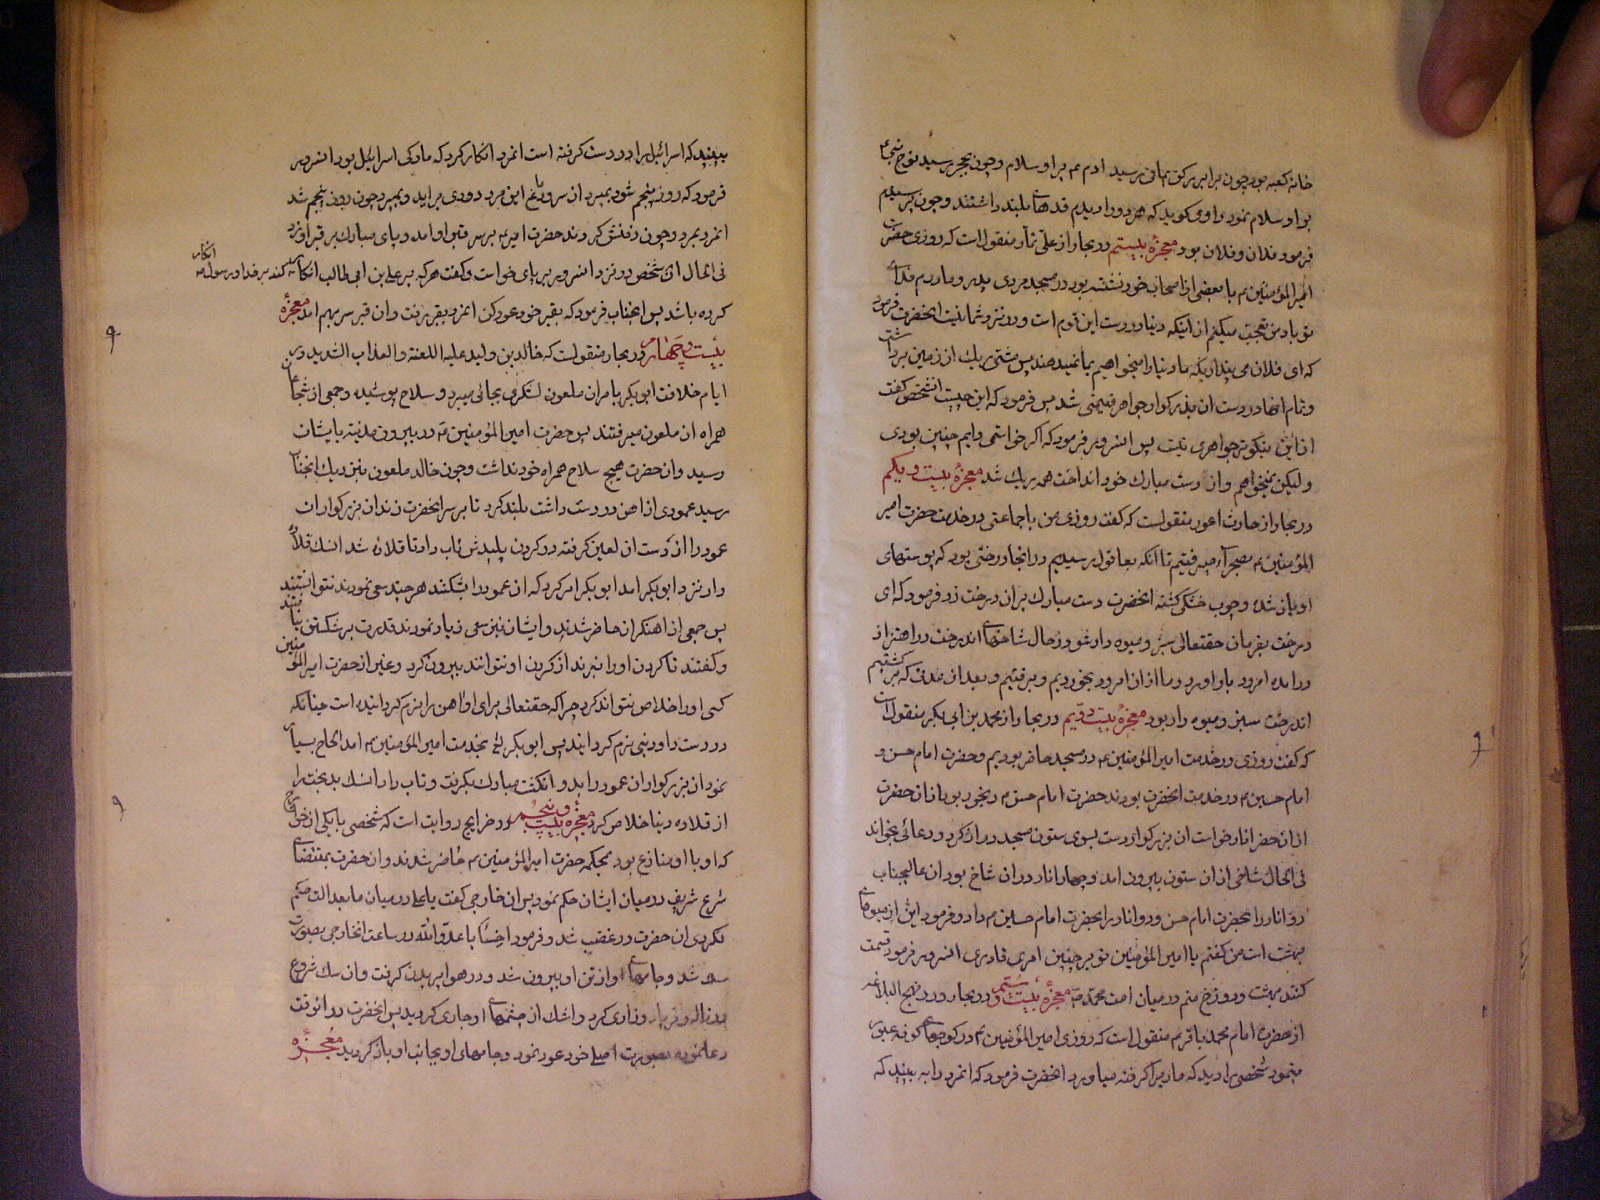 خانه کعبه بود چون برابر رکن یمانی رسید ادم عم براو سلام وچون بحجر رسید نوح
براو سلام نمود راوی کوید که هردو را دیدم قدهای بلند داشتند وچون پرسیدم
فرمود فلان وفلان بود معجزهٔ بیستم در بحار از علی منقول است که روزی حضرت
امیرالمؤمنین عم با بعضی از اصحاب خود نشسته بود در مسجد مردی پدر ومادرم فدای
تو باد من تعجب میکنم از اینکه دنیا در دست این قوم است ودر نزد شما نیست انحضرت فرمود
که ای فلان می پنداری که ما دنیا را میخواهیم بما نمیدهند پس مشتی ریک از زمین برداشت
وتمام انها در دست ان بزرکوار جواهر قیمتی شد پس فرمود که این چیست انشخص کفت
از این نیکوتر جواهری نیست پس انسرور فرمود که اکر خواستمی دایم چنین بودی
ولیکن نمیخواهم واز دست مبارک خود انداخت همه ریک شد معجزهٔ بیست ویکم
در بحار از حارث اعور منقولست که کفت روزی من با جماعتی در خدمت حضرت امیر
المؤمنین عم بصحرا میرفتیم تا انکه بعاقول رسیدیم در انجا درختی بود که پوستهای
او باز شده وچوب خشکی کشته انحضرت دست مبارک بران درخت زد فرمود که ای
درخت بفرمان حقتعالی سبز ومیوه دار شو در حال شاخهای اندرخت در اهتزاز
درامده امرود بار اورد وما ازان امرود بخوردیم وبرفتیم وبعد از مدت که بر کشتیم
اندرخت سبز ومیوه دار بود معجزهٔ بیست ودویم در بحار از محمد بن ابی بکر منقول است
که کفت روزی در خدمت امیرالمؤمنین عم در مسجد حاضر بودیم وحضرت امام حسن و
امام حسین عم در خدمت انحضرت بودند حضرت امام حسن عم رنجور بود ازان حضرت
ازان حضر انار خواست ان بزرکوار دست بسوی ستون مسجد دراز کرد ودعائی بخواند
فی الحال شاخی ازان ستون بیرون امد وچهار انار دران شاخ بود ان عالیجناب
دو انار را بحضرت امام حسن ودو انار را بحضرت امام حسین عم داد وفرمود این از میوهای
بهشت است من کفتم یا امیرالمؤمنین تو بر چنین امری قادری انسرور فرمود قسمت
کننده بهشت ودوزخ منم در میان امت محمد ص معجزهٔ بیست وسیم در بحار ودر نهج البلاغه
از حضرت امام محمد باقر عم منقول است که روزی امیرالمؤمنین عم در کوچهای کوفه عبور
مینمود شخصی را دید که مار را کرفته میاورد انحضرت فرمود که انمرد را به بینید که
ببینید که اسرائیل را در دست کرفته است انمرد انکار کرد که مار کی اسرائیل بود انسرور
فرمود که روز پنجم شود بمیرد از سر ودماغ این مرد دودی براید وبمیرد چون روز پنجم شد
انمرد بمرد وچون دفنش کردند حضرت امیر عم بر سر قبر او امد وپای مبارک بر قبر او زد
فی الحال ان شخص در نزد انسرور بر پای خواست وکفت هرکه بر علی بن ابی طالب انکار کند بر خدا ورسول انکار
کرده باشد پس انجناب فرمود که بقبر خود عود کن انمرد بقبر رفت وان قبر سر بهم امد معجزهٔ
بیست وچهارم در بحار منقولست که خالد بن ولید علیه اللعنة والعذاب الشدید در
ایام خلافت ابوبکر بامر ان ملعون لشکری بجائی میبرد وسلاح پوشیده وجمعی از شجاعان
همراه ان ملعون میرفتند پس حضرت امیرالمؤمنین عم در بیرون مدینه بایشان
رسید وان حضرت هیچ سلاح همراه خود نداشت وچون خالد ملعون بنزدیک انجناب
رسید عمودی از اهن در دست داشت بلند کرد تا بر سر انحضرت زند ان بزرکوار ان
عمود را از دست ان لعین کرفته در کردن پلیدش تاب داد تا قلاده شد انسک قلاده
دار نزد ابوبکر امد ابوبکر امر کرد که ان عمود را بشکنند هرچند سعی نمودند نتوانستند
پس جمعی از اهنکران حاضر شدند وایشان نیز سعی زیاد نمودند قدرت بر شکستن نیافتند
وکفتند تا کردن او را نبرند از کردن او نتوانند بیرون کرد وغیر از حضرت امیرالمؤمنین
کسی او را خلاص نتواند کرد چرا که حقتعالی برای او اهن را نرم کردانیده است چنانکه
در دست داود نبی نرم کردانید پس ابوبکر بخدمت امیرالمؤمنین عم امد الحاح بسیار
نمود ان بزرکوار ان عمود را بدو انکشت مبارک بکرفت وتاب داد انسک بدبخت را
از قلاده دنیا خلاص کرد معجزهٔ بیست وپنجم در خرایج روایت است که شخصی با یکی از خوارج
که او با او منازع بود بمحکمه حضرت امیرالمؤمنین عم حاضر شدند وان حضرت بمقتضای
شرع شریف در میان ایشان حکم نمود پس ان خارجی کفت یا علی در میان ما بعدالت حکم
نکردی ان حضرت در غضب شد وفرمود اخسأ یا عدو الله در ساعت انخارجی بصورت
سک شد وجامهای او از تن او بیرون شد ودر هوا پریدن کرفت وان سک شروع
در ناله وفریاد وزاری کرد واشک از چشمهای او جاری کردید پس انحضرت در انوقت
دعا نموده بصورت اصلی خود عود نمود وجامهای او بجانب او باز کردید معجزهٔ